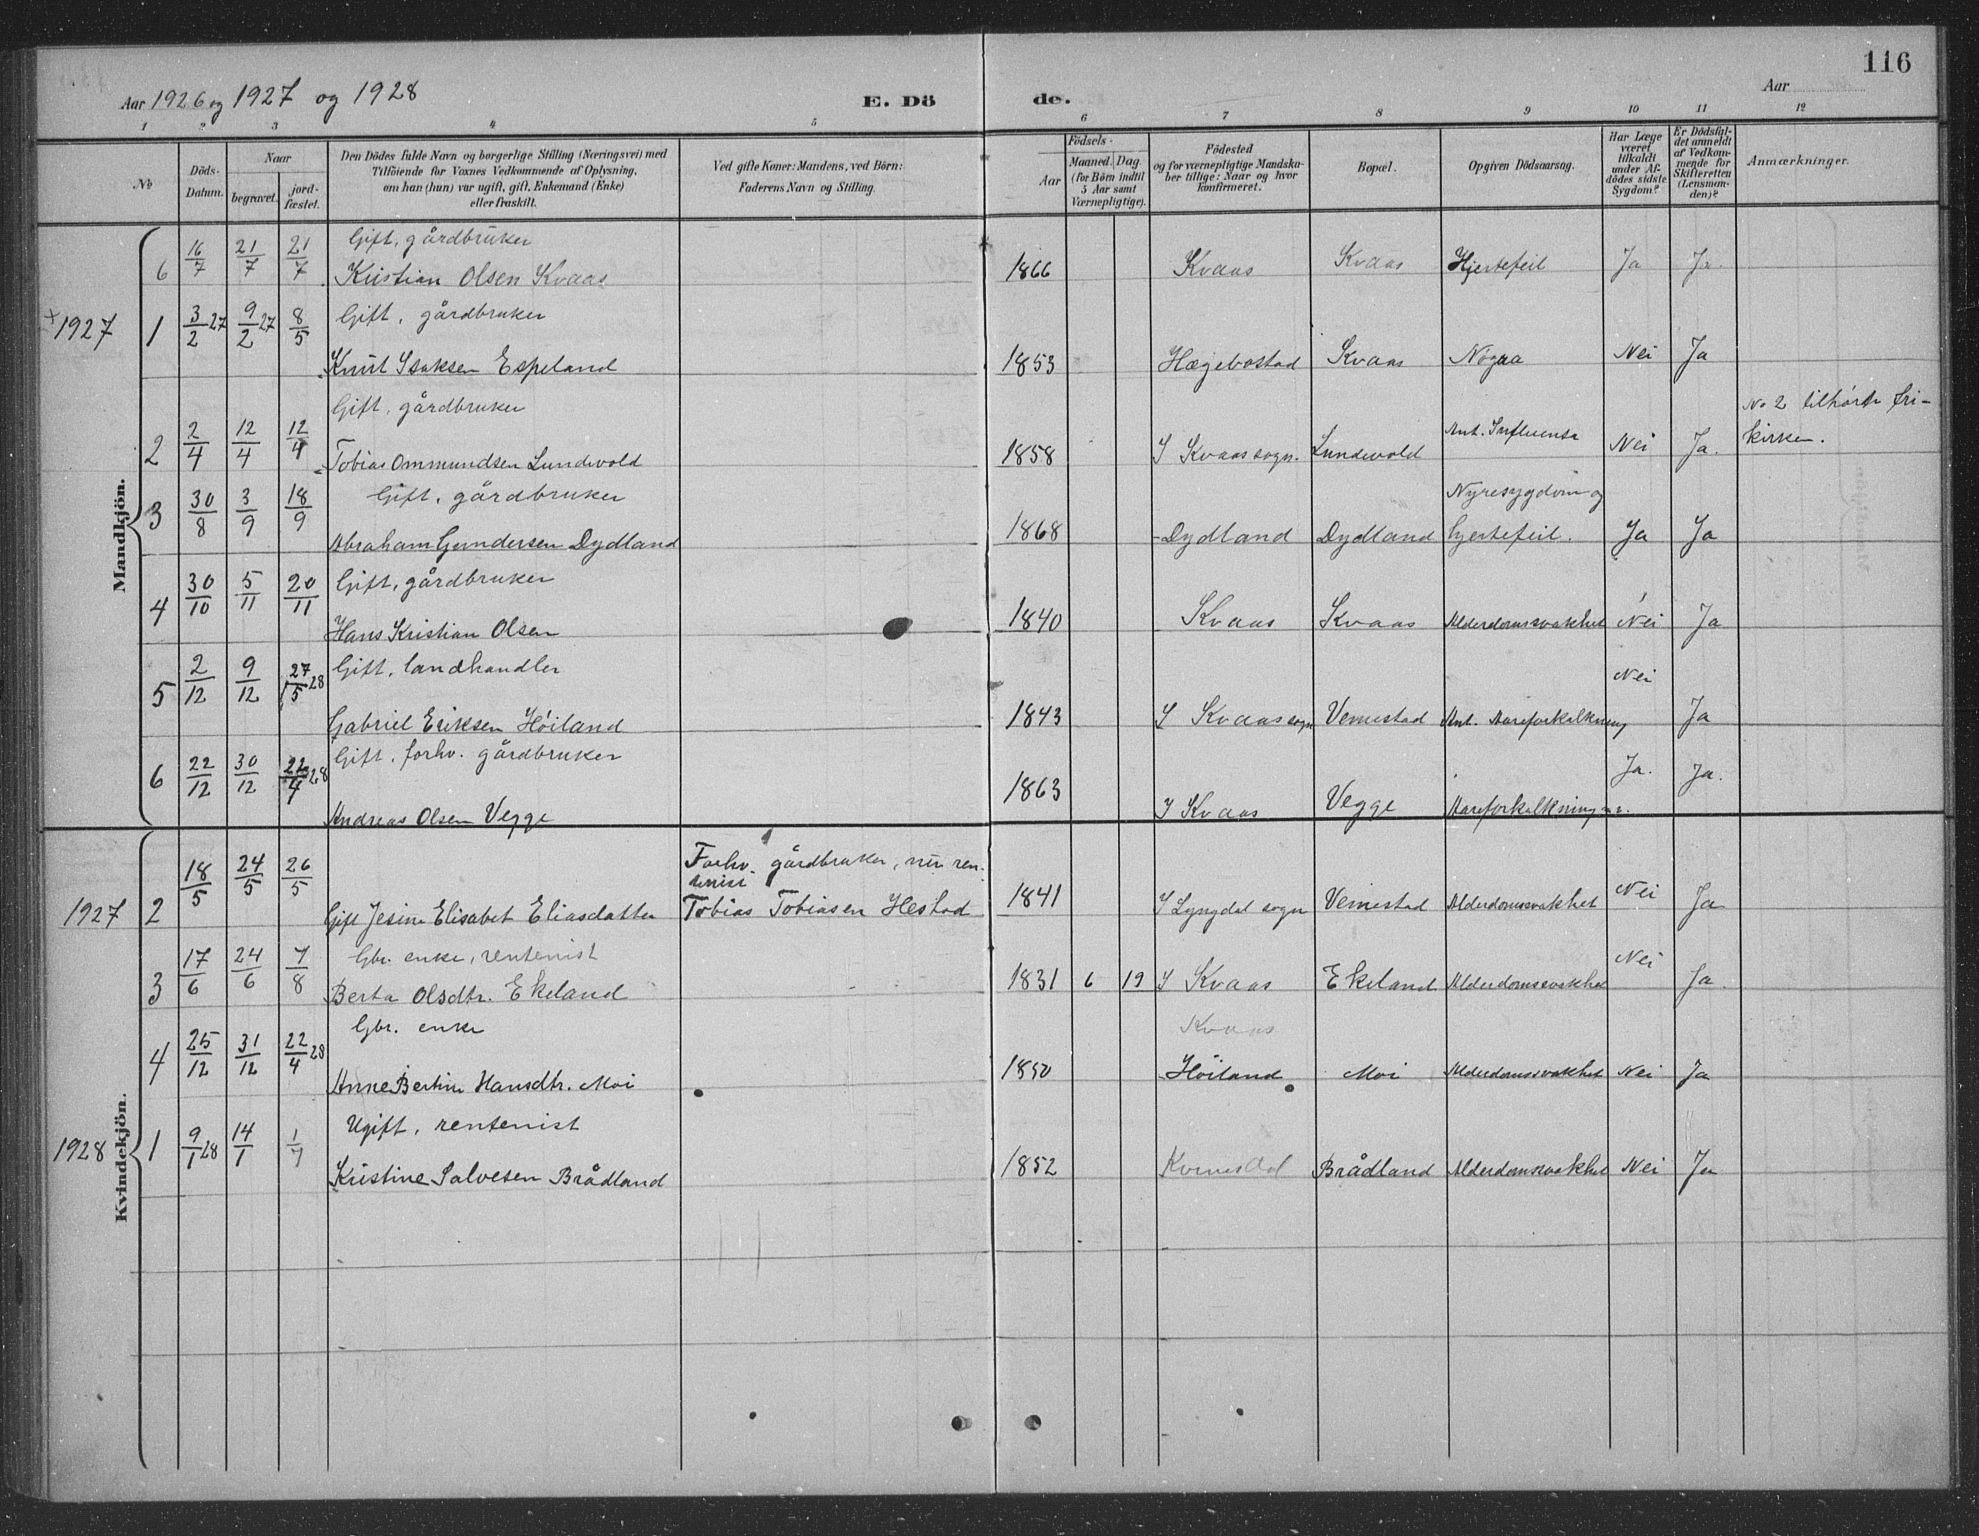 116
Aar 1926 og 1927 og 1928
E. Dö
de.
Aar
1 2 3 4 5 6 7 8 9 10 11 12
No
Döds-Datum.
Naar
begravet.
jord-fæstet.
Den Dödes fulde Navn og borgerlige Stilling (Næringsvei) med
Tilföiende for Voxnes Vedkommende af Oplysning,
om han (hun) var ugift, gift, Enkemand (Enke)
eller fraskilt.
Ved gifte Koner: Mandens, ved Börn:
Faderens Navn og Stilling.
Födsels-
Aar
Maaned. Dag
(for Börn indtil
5 Aar samt
Værnepligtige).
Födested
og for værnepligtige Mandska-
ber tillige: Naar og hvor
konfirmeret.
Bopæl.
Opgiven Dödsaarsag.
Har Læge
været
tilkaldt
under Af-
dödes sidste
Sygdom?
Er Dödsfal-
det anmeldt
af Vedkom-
mende for
Skifteretten
(Lensman-
den)?
Anmærkninger.
Mandkjön.
Gift, gårdbruker
6 16/7 21/7 21/7 Kristian Olsen Kvaas 1866 Kvaas Kvaas Hjertefeil Ja Ja.
Gift, gårdbruker
1927 1 3/2 27 9/2 27 8/5 Knut Isaksen Espeland 1853 Hægebostad Kvaas Nei Ja
Gift, gårdbruker
No 2 tilhørte fri-
2 2/4 12/4 12/4 Tobias Ommundsen Lundevold 1858 I Kvaas sogn. Lundevold Ant. Influensa Nei Ja. kirken.
Gift, gårdbruker
Nyresygdom og
3 30/8 3/9 18/9 Abraham Gundersen Dydland 1868 Dydland Dydland hjertefeil. Ja Ja
Gift, gårdbruker
4 30/10 5/11 20/11 Hans Kristian Olsen 1840 Kvaas Kvaas Alderdomssvakhet Nei Ja
Gift, landhandler
5 2/12 9/12 27/5 28 Gabriel Eriksen Höiland 1843 I Kvaas sogn Vemestad Ant. Aareforkalkning Nei Ja
Gift, forhv. gårdbruker
6 22/12 30/12 22/4 28 Andreas Olsen Vegge 1863 I Kvaas Vegge Aareforkalkning Ja. Ja.
Kvindekjön.
Forhv. gårdbruker, nu ren-
tenist
1927 2 18/5 24/5 26/5 Gift Jesine Elisabet Eliasdatter Tobias Tobiasen Hestad 1841 I Lyngdal sogn Vemestad Alderdomssvakhet Nei Ja
Gbr. enke, rentenist
3 17/6 24/6 7/8 Berta Olsdtr. Ekeland 1831 6 19 I Kvaas Ekeland Alderdomssvakhet Nei Ja.
Gbr. enke
Kvaas
4 25/12 31/12 22/4 28 Anne Bertine Hansdtr. Moi 1850 Höiland Moi Alderdomssvakhet Nei Ja
Ugift, rentenist
1928 1 9/1 28 14/1 1/7 Kristine Salvesen Brådland 1852 Kvinesdal Brådland Alderdomssvakhet Nei Ja